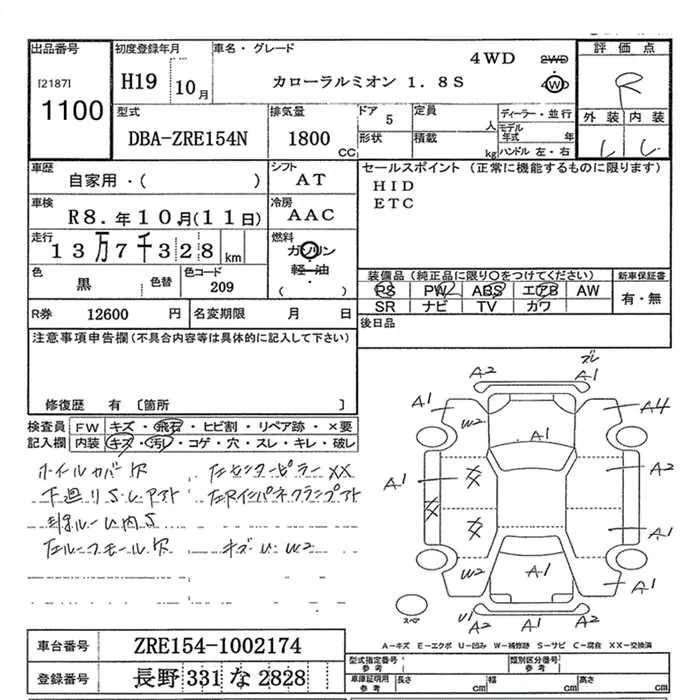 出品番号
[2187]
1100
初度登録年月
H19 10月
車名・グレード
カローラルミオン 1.8S
4WD
2WD
4WD
評価点
R
外装 内装
型式
DBA-ZRE154N
排気量
1800
CC
ドア
5
定員
人
形状
積載
kg
ディーラー・並行
モデル年式 年
ハンドル 左・右
車歴
自家用・( )
シフト
AT
セールスポイント (正常に機能するものに限ります)
HID
ETC
車検
R8.年10月(11日)
冷房
AAC
走行
13万7千328 km
燃料
ガソリン
軽・油
( )
色
黒
色替
色コード
209
装備品 (純正品に限り○をつけてください)
PS PW ABS エアB AW
SR ナビ TV カワ
新車保証書
有・無
R券 12600 円
名変期限 月 日
後日品
注意事項申告欄 (不具合内容等は具体的に記入して下さい)
修復歴 有 〔箇所 〕
検査員記入欄
FW キズ・飛石・ヒビ割・リペア跡・×要
内装 キズ・汚れ・コゲ・穴・スレ・キレ・破レ
ホイルカバーキズ
左センターピラーXX
下廻りS・レアフト
左ルーフモールキズ
キズU W2
ズレ
A2
A1
A1
A4
W2
A1
A1
A2
A1
W2
A1
A1
U1
A2
A2
スペア
A-キズ E-エクボ U-凹み W-補修跡 S-サビ C-腐食 XX-交換済
車台番号
ZRE154-1002174
登録番号
長野 331 な 2828
型式指定番号
参考
類別区分番号
参考
車庫証明用
参考
長さ cm
幅 cm
高さ cm